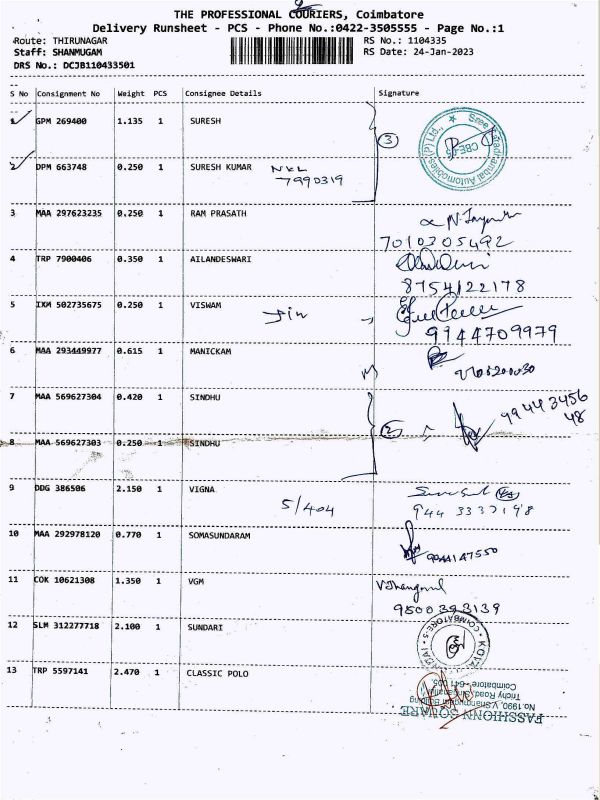 THE PROFESSIONAL COURIERS, Coimbatore
Delivery Runsheet - PCS - Phone No.:0422-3505555 - Page No.:1
Route: THIRUNAGAR
RS No.: 1104335
Staff: SHANMUGAM
RS Date: 24-Jan-2023
DRS No.: DCJB110433501
S No Consignment No Weight PCS Consignee Details Signature
1 GPM 269400 1.135 1 SURESH
3
2 DPM 663748 0.250 1 SURESH KUMAR
7990319
3 MAA 297623235 0.250 1 RAM PRASATH
7010305492
4 TRP 7900406 0.350 1 AILANDESWARI
8754122178
5 IXM 502735675 0.250 1 VISWAM
9944709979
6 MAA 293449977 0.615 1 MANICKAM
7 MAA 569627304 0.420 1 SINDHU
2
99443456
48
8 MAA 569627303 0.250 1 SINDHU
9 DDG 386506 2.150 1 VIGNA
5/404
10 MAA 292978120 0.770 1 SOMASUNDARAM
9944147550
11 COK 10621308 1.350 1 VGM
9500393139
12 SLM 312277718 2.100 1 SUNDARI
COIMBATORE - 5
13 TRP 5597141 2.470 1 CLASSIC POLO
FASSHIONN SQUARE
Trichy Road,
Coimbatore - 641 005.